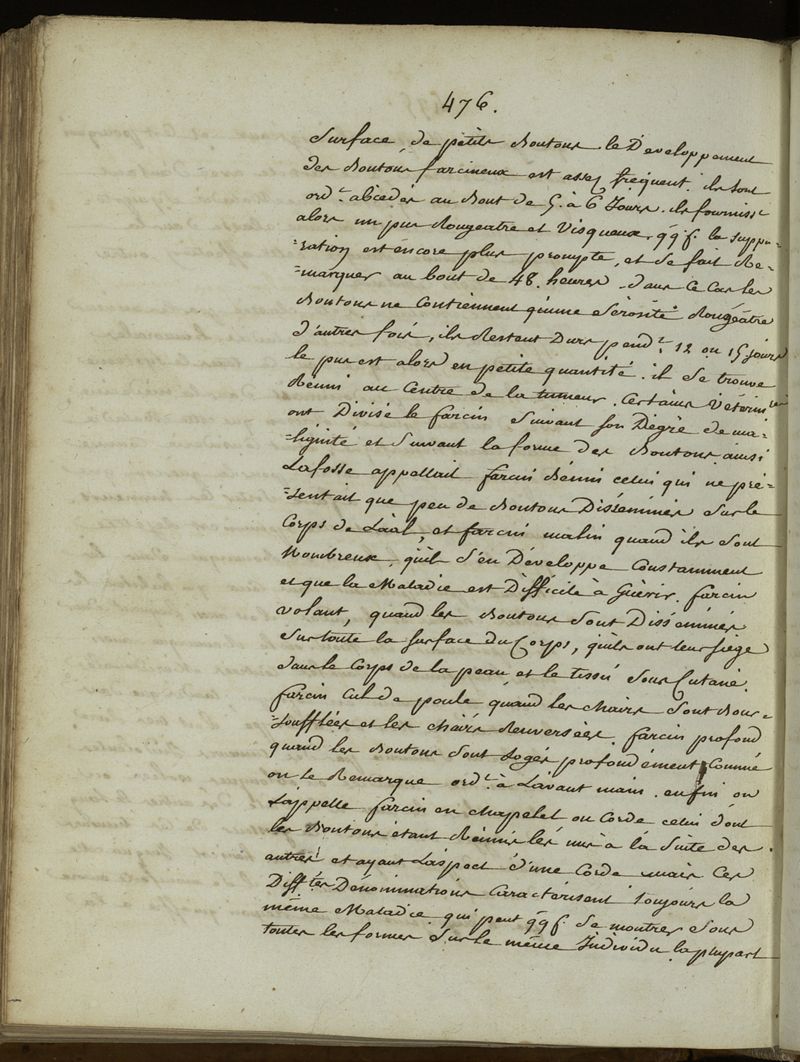 476.
surface, de pétits Boutons. le Developpement
des Boutons farcineux est assez fréquent. ils sont
ord.t abcédés au Bout de 5. à 6 Jours. ils fourniss.t
alors un pus Rougeatre et Visqueux. qq f. la suppu=
=ration est éncore plus prompte, et se fait Re=
=marquer au bout de 48. heures. dans Ce Cas les
Boutons ne Contiennent qu'une Sérosité Rougeâtre
d'autres fois, ils Restent Durs pend.t 12 ou 15 jours
le pus est alors en petite quantité. il se trouve
Réuni au Centre de la tumeur. Certains Vétérin.res
ont Divisé le farcin Suivant son Dégré de ma=
=lignité et Suivant la forme des Boutons ainsi
Lafosse appellait farcin Bénin celui qui ne pré=
=sentait que peu de Boutons Disséminés sur le
Corps de L'a.al, et farcin malin quand ils sont
Nombreux, qu'il s'en Développe Constamment
et que la Maladie est Difficile à Guérir. farcin
volant, quand les Boutons sont Disséminés
sur toute la Surface du Corps, qu'ils ont leur siége
dans le Corps de la peau et le tissu sous Cutané.
farcin Cul de poule quand les chairs sont Bour=
=soufflées et les chairs Renversées. farcin profond
quand les Boutons sont Logés profondément Comme
on le Remarque ord.t à L'avant main. enfin on
L'appelle farcin en chapelet ou Corde celui dont
les Boutons étant Réunis lés uns à la Suite des
autres et ayant L'aspect d'une Corde mais Ces
Diff.tes Dénominations Caractérisent toujours la
même Maladie qui peut qq f. Se montrer Sous
toutes les formes Sur le même Individu la plupart